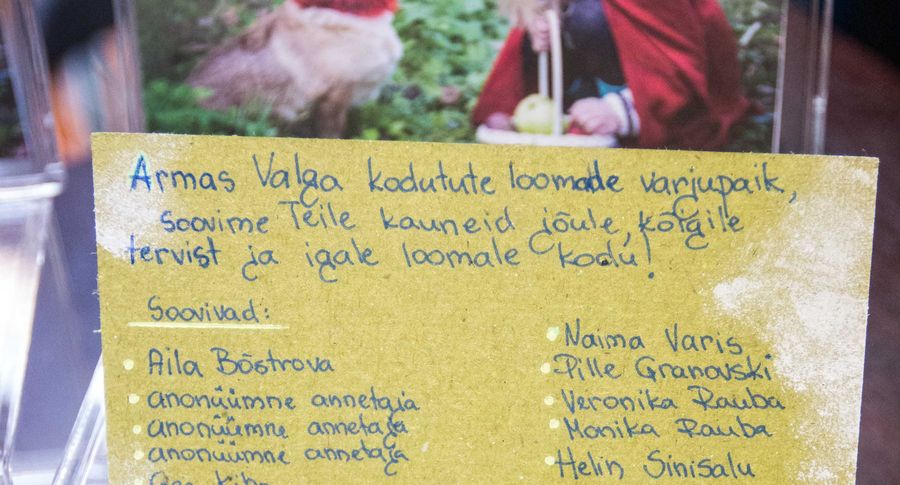 Armas Valga kodutute loomade varjupaik,
soovime Teile kauneid jõule, kõigile
tervist ja igale loomale kodu!
Soovivad:
Aila Bõstrova
anonüümne annetaja
anonüümne annetaja
anonüümne annetaja
Naima Varis
Pille Granovski
Veronika Rauba
Monika Rauba
Helin Sinisalu